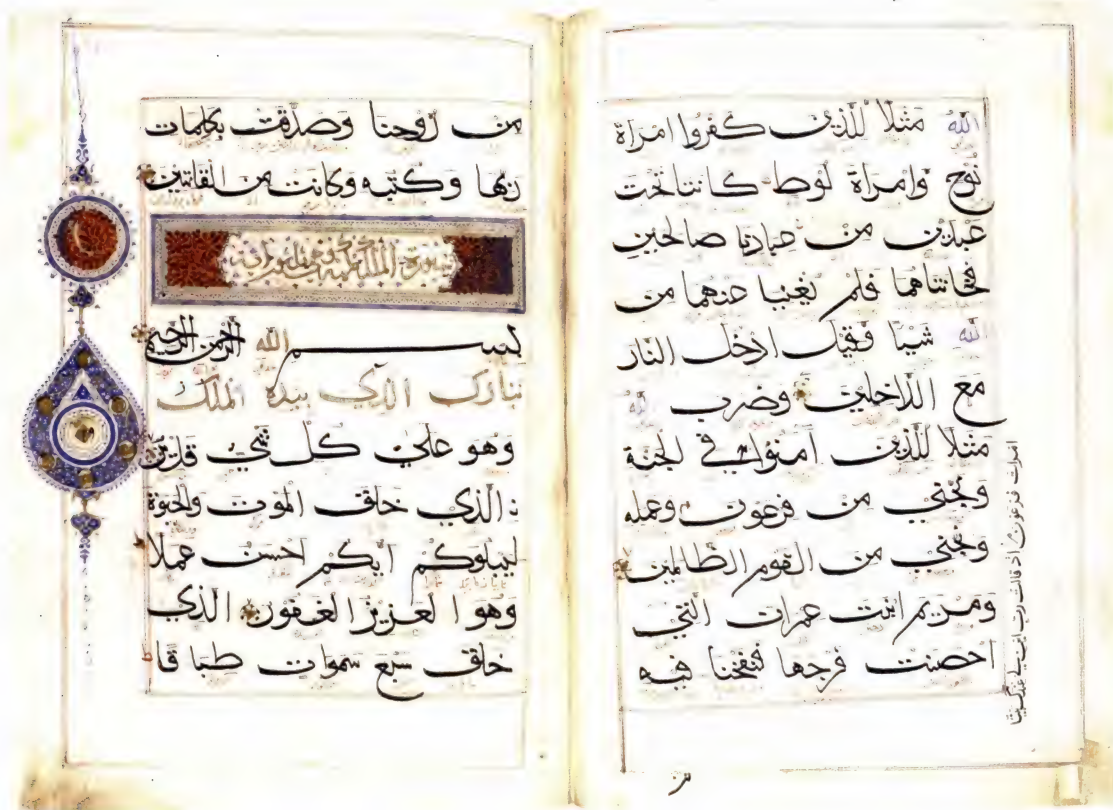 الله مثلا للذين كفروا امراة
نوح وامراة لوط كانتا تحت
عبدين من عبادنا صالحين
فخانتاهما فلم يغنيا عنهما من
الله شيا وقيل ادخلا النار
مع الداخلين وضرب الله
مثلا للذين امنوا في الجنة
ونجني من فرعون وعمله
ونجني من القوم الظالمين
ومريم ابنت عمران التي
احصنت فرجها فنفخنا فيه
امرات فرعون اذ قالت رب ابن لي عندك بيتا
من روحنا وصدقت بكلمات
ربها وكتبه وكانت من القانتين
سورة الملك
بسم الله الرحمن الرحيم
تبارك الذي بيده الملك
وهو علي كل شي قدير
الذي خلق الموت والحيوة
ليبلوكم ايكم احسن عملا
وهوا لعزيز الغفور الذي
خلق سبع سموات طباقا